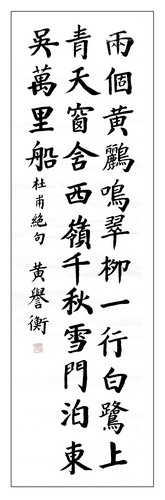 兩個黃鸝鳴翠柳一行白鷺上
青天窗含西嶺千秋雪門泊東
吳萬里船杜甫絕句 黃譽衡